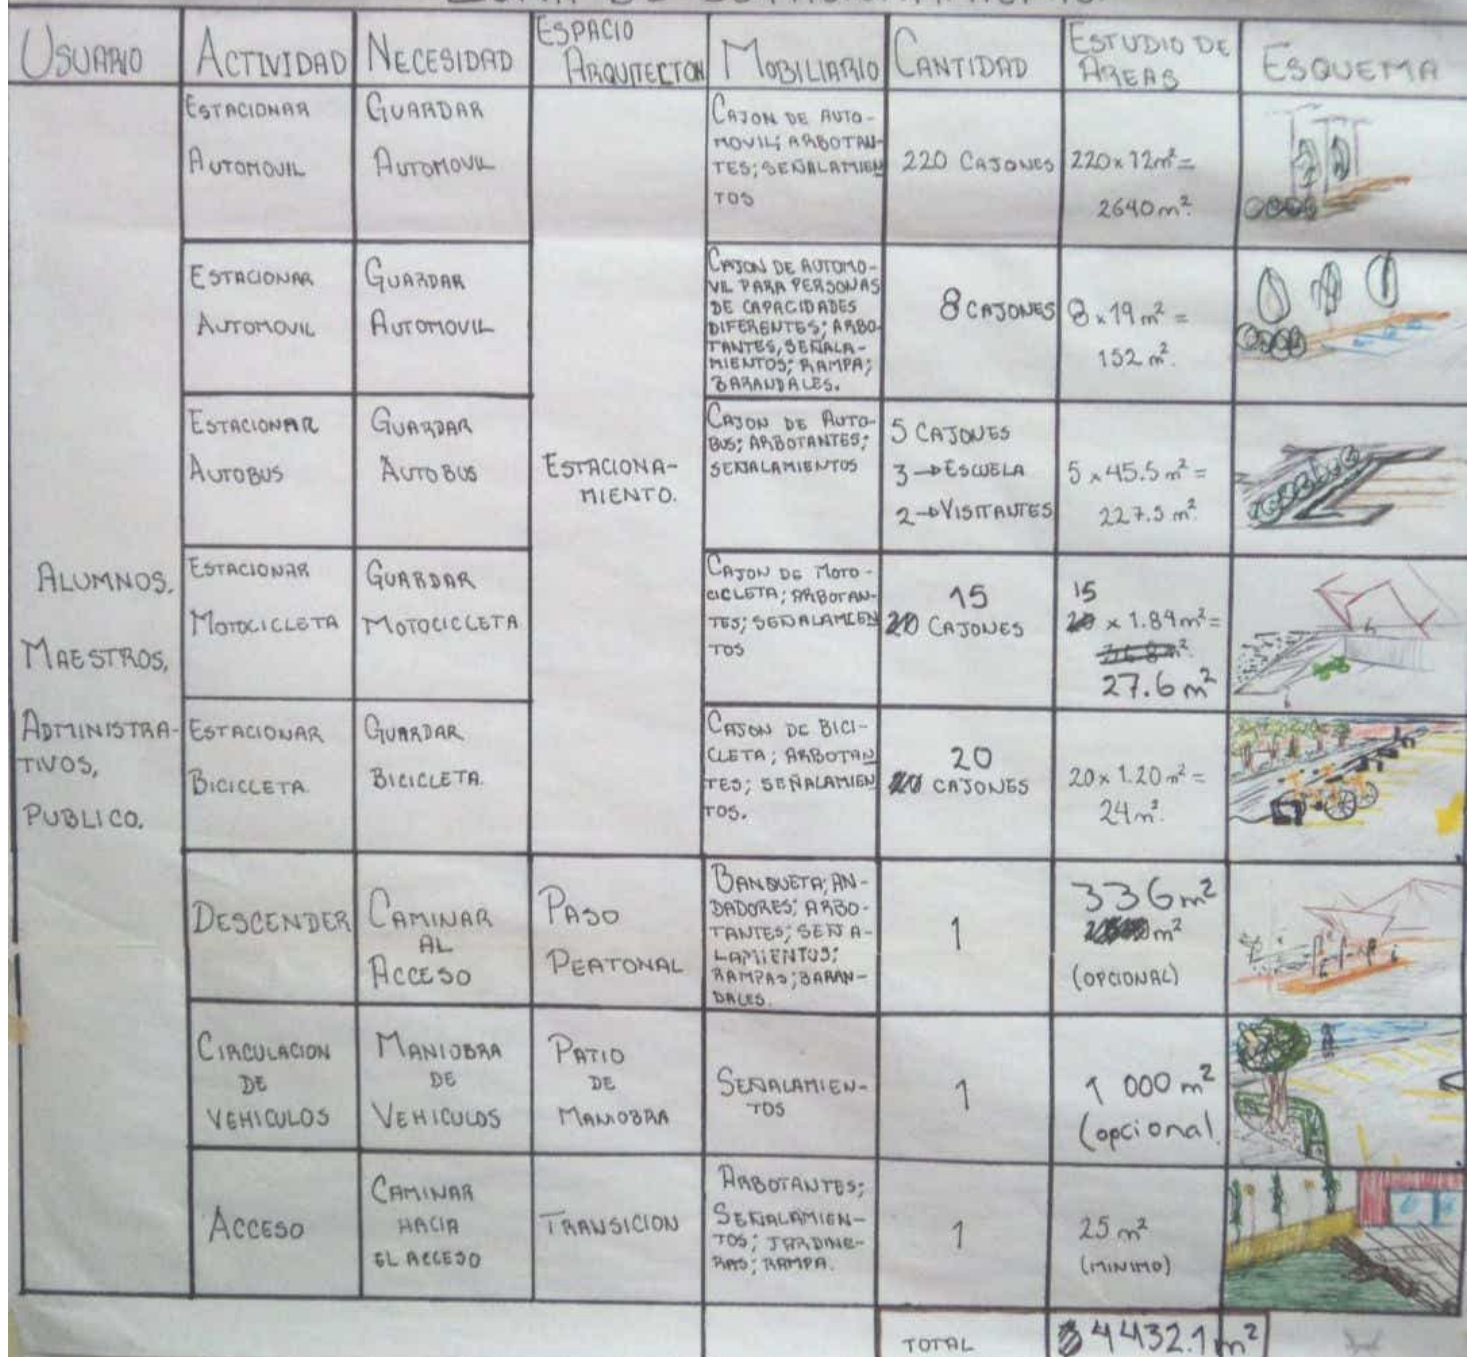 USUARIO
ACTIVIDAD
NECESIDAD
ESPACIO
ARQUITECTON
MOBILIARIO
CANTIDAD
ESTUDIO DE
AREAS
ESQUEMA
ALUMNOS,
MAESTROS,
ADMINISTRA-
TIVOS,
PUBLICO.
ESTACIONAR
AUTOMOVIL
GUARDAR
AUTOMOVIL
ESTACIONA-
MIENTO.
CAJON DE AUTO-
MOVIL; ARBOTAN-
TES; SEÑALAMIEN
TOS
220 CAJONES
220 x 12m² =
2640 m².
ESTACIONAR
AUTOMOVIL
GUARDAR
AUTOMOVIL
CAJON DE AUTOMO-
VIL PARA PERSONAS
DE CAPACIDADES
DIFERENTES; ARBO-
TANTES, SEÑALA-
MIENTOS; RAMPA;
BARANDALES.
8 CAJONES
8 x 19 m² =
152 m².
ESTACIONAR
AUTOBUS
GUARDAR
AUTOBUS
CAJON DE AUTO-
BUS; ARBOTANTES;
SEÑALAMIENTOS
5 CAJONES
3 → ESCUELA
2 → VISITANTES
5 x 45.5 m² =
227.5 m².
ESTACIONAR
MOTOCICLETA
GUARDAR
MOTOCICLETA
CAJON DE MOTO-
CICLETA; ARBOTAN-
TES; SEÑALAMIEN
TOS
15
CAJONES
15
x 1.84m² =
27.6 m²
ESTACIONAR
BICICLETA
GUARDAR
BICICLETA.
CAJON DE BICI-
CLETA; ARBOTAN
TES; SEÑALAMIEN
TOS.
20
CAJONES
20 x 1.20 m² =
24 m².
DESCENDER
CAMINAR
AL
ACCESO
PASO
PEATONAL
BANQUETA; AN-
DADORES; ARBO-
TANTES; SEÑA-
LAMIENTOS;
RAMPAS; BARAN-
DALES.
1
336 m²
m²
(OPCIONAL)
CIRCULACION
DE
VEHICULOS
MANIOBRA
DE
VEHICULOS
PATIO
DE
MANIOBRA
SEÑALAMIEN-
TOS
1
1 000 m²
(opcional.
ACCESO
CAMINAR
HACIA
EL ACCESO
TRANSICION
ARBOTANTES;
SEÑALAMIEN-
TOS; JARDINE-
RAS; RAMPA.
1
25 m²
(MINIMO)
TOTAL
4432.1 m²